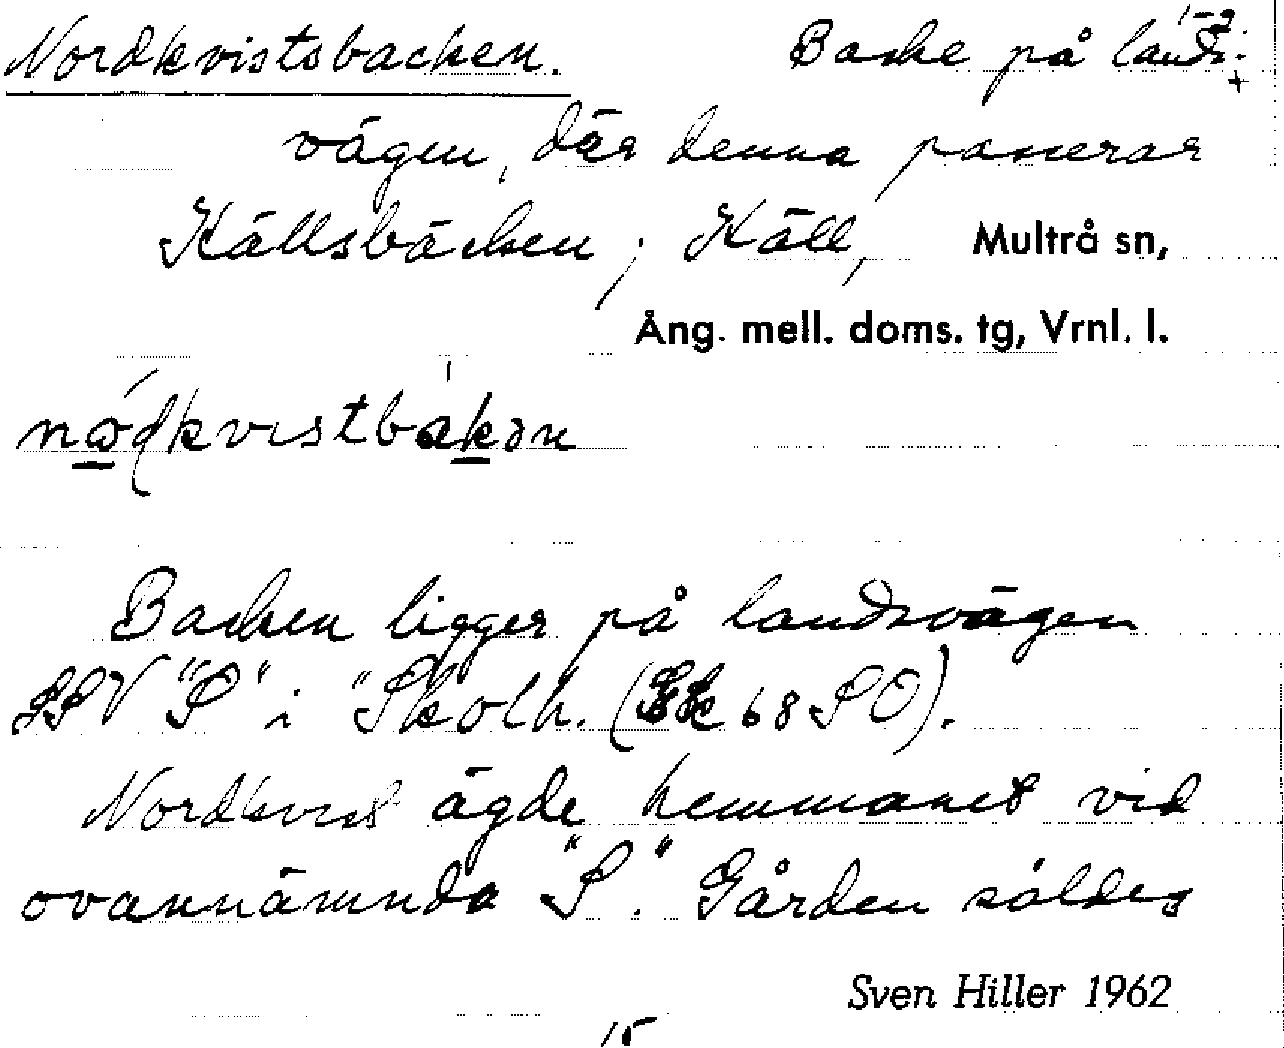 Nordkvistsbacken. Backe på lands-
vägen, där denna passerar
Källsbäcken; Käll, Multrå sn,
Ång. mell. doms. tg, Vrnl. l.
Backen ligger på landsvägen
SSV "S" i "Skolh. (Ek 68 SO).
Nordkvist ägde hemmanet vid
ovannämnda "S". Gården såldes
Sven Hiller 1962
15